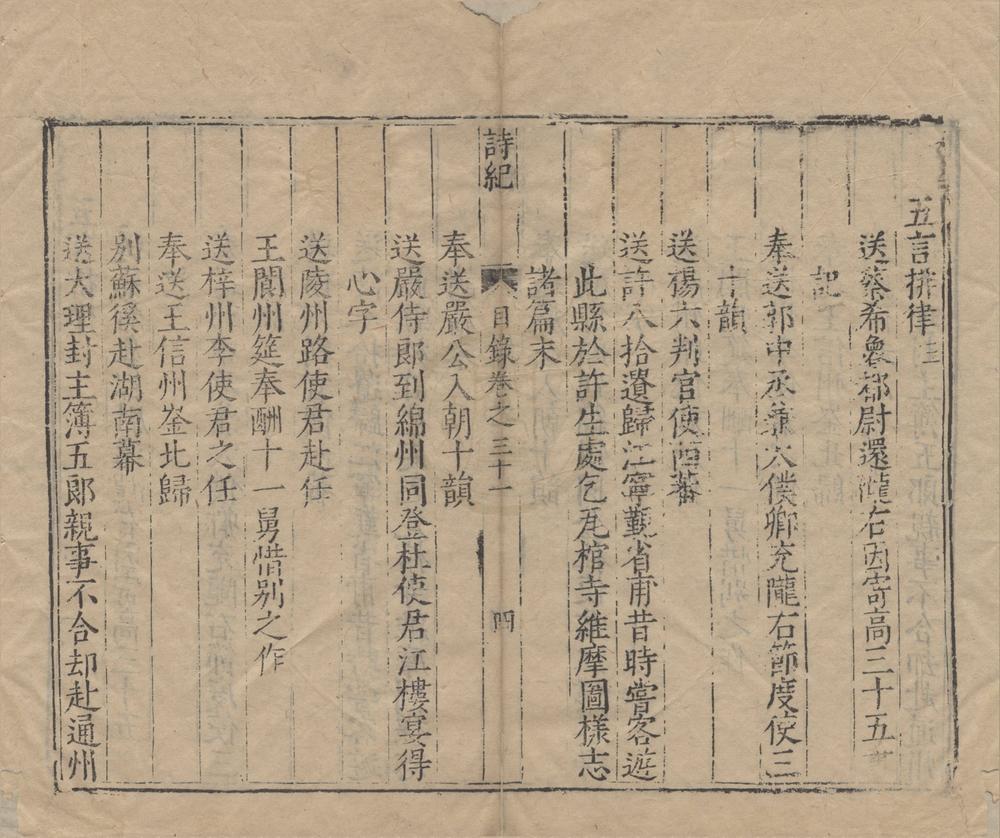 五言排律三
送蔡希魯都尉還隴右因寄高三十五書
記
奉送郭中丞兼太僕卿充隴右節度使三
十韻
送楊六判官使西蕃
送許八拾遺歸江寧覲省甫昔時嘗客遊
此縣於許生處乞瓦棺寺維摩圖樣志
諸篇末
詩紀 目錄卷之三十一 四
奉送嚴公入朝十韻
送嚴侍郎到綿州同登杜使君江樓宴得
心字
送陵州路使君赴任
王閬州筵奉酬十一舅惜別之作
送梓州李使君之任
奉送王信州崟北歸
別蘇徯赴湖南幕
送大理封主簿五郎親事不合却赴通州